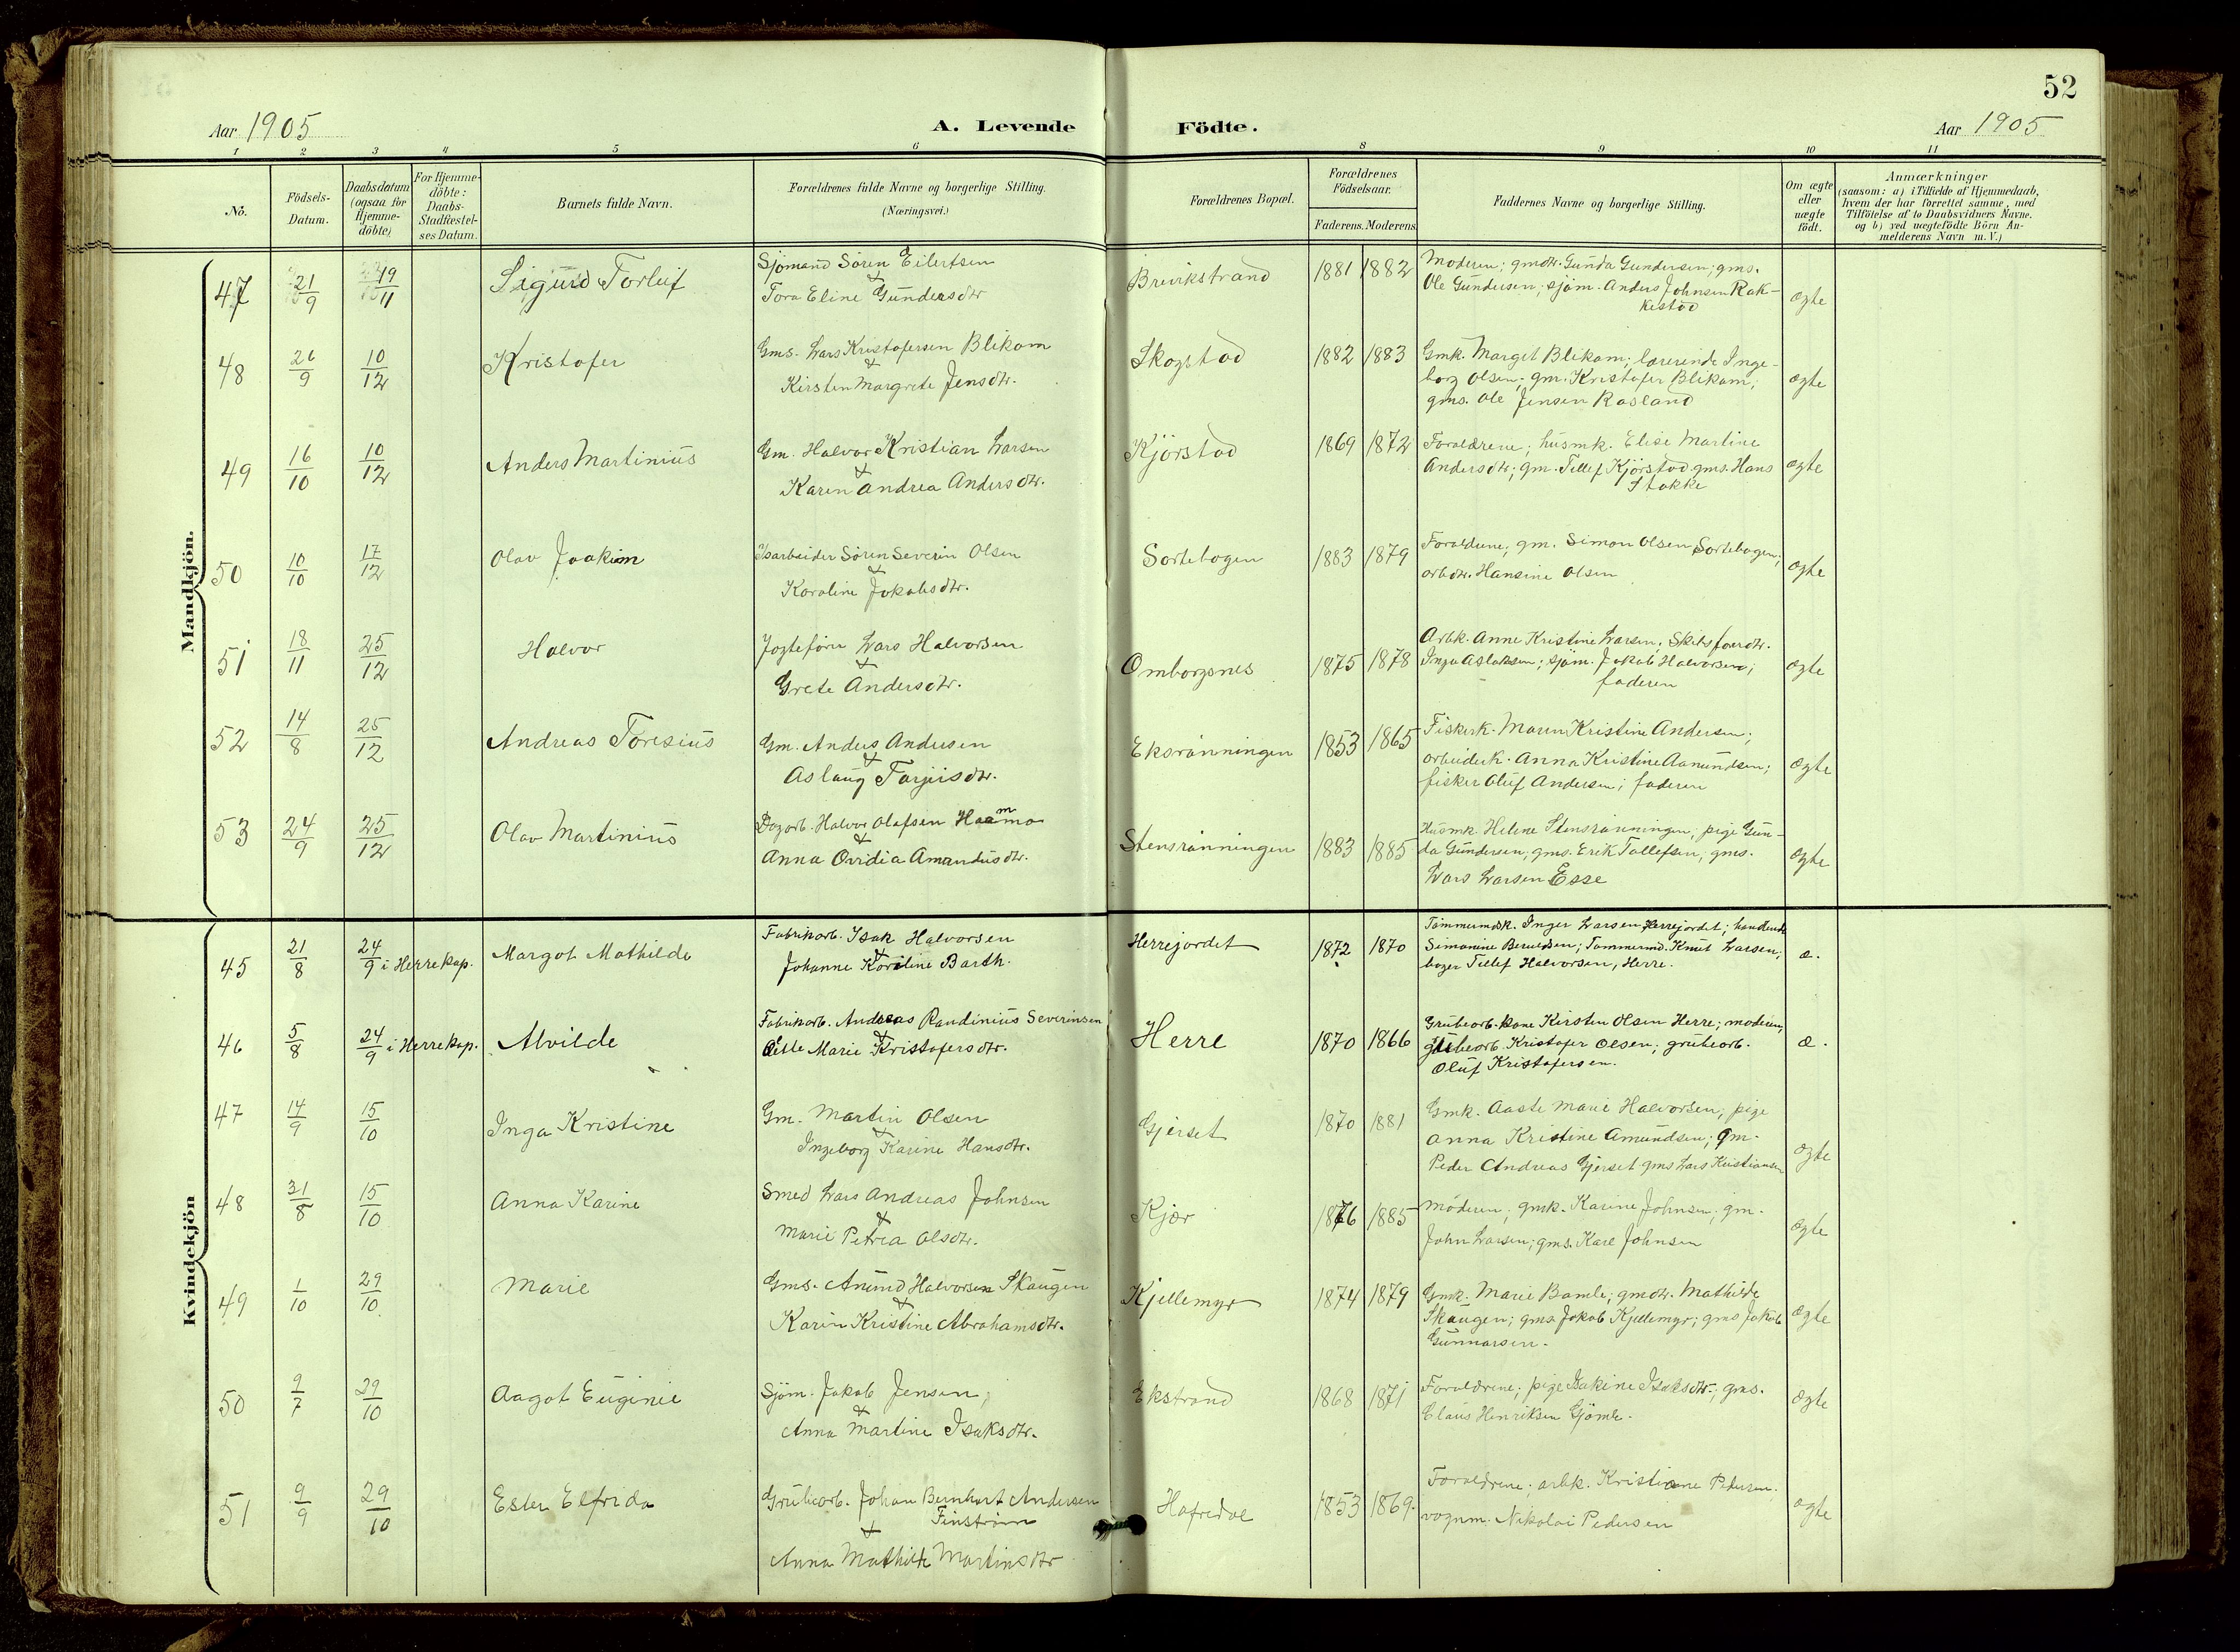 52
Aar 1905
A. Levende
Födte.
Aar 1905
1 2 3 4 5 6 8 9 10 11
No.
Födsels-
Datum.
Daabsdatum
(ogsaa for
Hjemme-
döbte)
For Hjemme-
döbte:
Daabs-
Stadfæstel-
ses Datum.
Barnets fulde Navn.
Forældrenes fulde Navne og borgerlige Stilling.
(Næringsvei.)
Forældrenes Bopæl.
Forældrenes
Födselsaar.
Faderens. Moderens.
Faddernes Navne og borgerlige Stilling.
Om ægte
eller
uægte
födt.
Anmærkninger
(saasom: a) i Tilfælde af Hjemmedaab,
hvem der har forrettet samme, med
Tilföielse af to Daabsvidners Navne.
og b) ved uægtefödte Börn An-
melderens Navn m.V.)
Mandkjön.
47 21/9 19/11 Sigurd Torleif
Sjömand Sören Eilertsen
&
Tora Eline Gundersdtr
Brevikstrand 1881 1882
Moderen; gmdtr. Gunda Gundersen; gms.
Ole Gundersen; sjöm. Anders Johnsen Rak-
kestad
ægte
48 26/9 10/12 Kristofer
Gms. Lars Kristofersen Blikom
&
Kirsten Margrete Jensdtr.
Skogstad 1882 1883
Gmk. Margit Blikom; lærerinde Inge-
borg Olsen; gm. Kristofer Blikom;
gms. Ole Jensen Rosland
ægte
49 16/10 10/12 Anders Martinius
Gm. Halvor Kristian Larsen
&
Karen Andrea Andersdtr.
Kjörstad 1869 1872
Forældrene; husmk. Elise Martine
Andersdtr; gm. Tellef Kjörstad gms. Hans
Stokke
ægte
50 10/10 17/12 Olav Joakim
Isarbeider Sören Severin Olsen
&
Karoline Jokabsdtr.
Sortebogen 1883 1879
Forældrene; gm. Simon Olsen Sortebogen;
arbdtr. Hansine Olsen
ægte
51 18/11 25/12 Halvor
Jogteförer Lars Halvorsen
&
Grete Andersdtr.
Omborgsnes 1875 1878
Arbk. Anne Kristine Larsen; Skibsförerdtr.
Inga Aslaksen; sjöm. Jakob Halvorsen;
faderen
ægte
52 14/8 25/12 Andreas Toresius
Gm. Anders Andersen
&
Aslaug Torjusdtr.
Eksrönningen 1853 1865
Fiskerk. Maren Kristine Andersen;
arbeiderk. Anna Kristine Aamundsen;
fisker Oluf Andersen; faderen
ægte
53 24/9 25/12 Olav Martinius
Dagarb. Halvor Olafsen
&
Anna Ovidia Amandusdtr.
Stensrönningen 1883 1885
Husmk. Helene Stensrönningen; pige Gun-
da Gundersen; gms. Erik Tollefsen; gms.
Lars Larsen Esse
ægte
Kvindekjön
45 21/8 24/9 i Herre kap. Margot Mathilde
Fabrikarb. Isak Halvorsen
&
Johanne Karoline Barth.
Herrejordet 1872 1870
Tömmermdsk. Inger Larsen Herrejordet; handlende
Simonine Berntsen; Tömmermd. Knut Larsen;
bager Tellef Halvorsen, Herre.
æ.
46 5/8 24/9 i Herre kap. Alvilde
Fabrikarb. Andreas Randinius Severinsen
&
Marie Kristofersdtr.
Herre 1870 1866
Grubearb. kone Kirsten Olsen Herre; moderen;
grubearb. Kristofer Olsen; grubearb.
Oluf Kristofersen.
æ.
47 14/9 15/10 Inga Kristine
Gm. Martin Olsen
&
Ingeborg Karine Hansdtr.
Gjerset 1870 1881
Gmk. Aaste Marie Halvorsen; pige
Anna Kristine Amundsen; gm.
Peder Andreas Gjerset gms Lars Kristiansen
ægte
48 31/8 15/10 Anna Karine
Smed Lars Andreas Johnsen
&
Marie Petrea Olsdtr.
Kjær 1876 1885
Moderen; gmk. Karine Johnsen; gm.
John Larsen; gms. Karl Johnsen
ægte
49 1/10 29/10 Marie
Gms. Anund Halvorsen Skaugen
&
Karin Kristine Abrahamsdtr.
Kjellemyr 1874 1879
Gmk. Marie Bamle; gmdtr. Mathilde
Skaugen; gms. Jakob Kjellemyr; gms Jakob
Gunnarsen.
ægte
50 9/7 29/10 Aagot Euginie
Sjöm. Jakob Jensen;
&
Anna Martine Isaksdtr.
Ekstrand 1868 1871
Forældrene; pige Isakine Isaksdtr.; gms.
Claus Henriksen Gjömle.
ægte
51 9/9 29/10 Ester Elfrida
Grubearb. Johan Bernhart Andersen
Finström
&
Anna Mathilde Martinsdtr
Hafredal 1853 1869.
Forældrene; arbk. Kristiane Pedersen.
vognm. Nikolai Pedersen
ægte